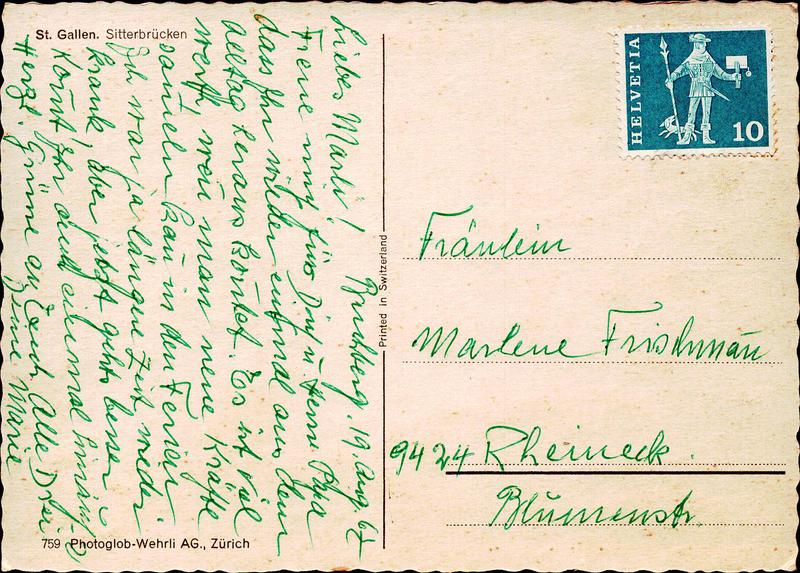 St. Gallen. Sitterbrücken
Buchberg. 19. Aug. 67
Liebes Marli!
Freue mich für Dich u. Herr Papa
dass Ihr wieder einmal aus dem
Alltag heraus könntet. Es ist viel
wert, weil man neue Kräfte
sameln kan in den Ferien.
Ich war ja längere Zeit wieder
krank, aber jetzt gehts besser
Komt Ihr auch einmal
Herzl. Grüsse an Euch Alle Drei
Deine Marie
759 Photoglob-Wehrli AG., Zürich
Printed in Switzerland
HELVETIA
10
Fräulein
Marlene Frischman
9424 Rheineck.
Blumenstr.